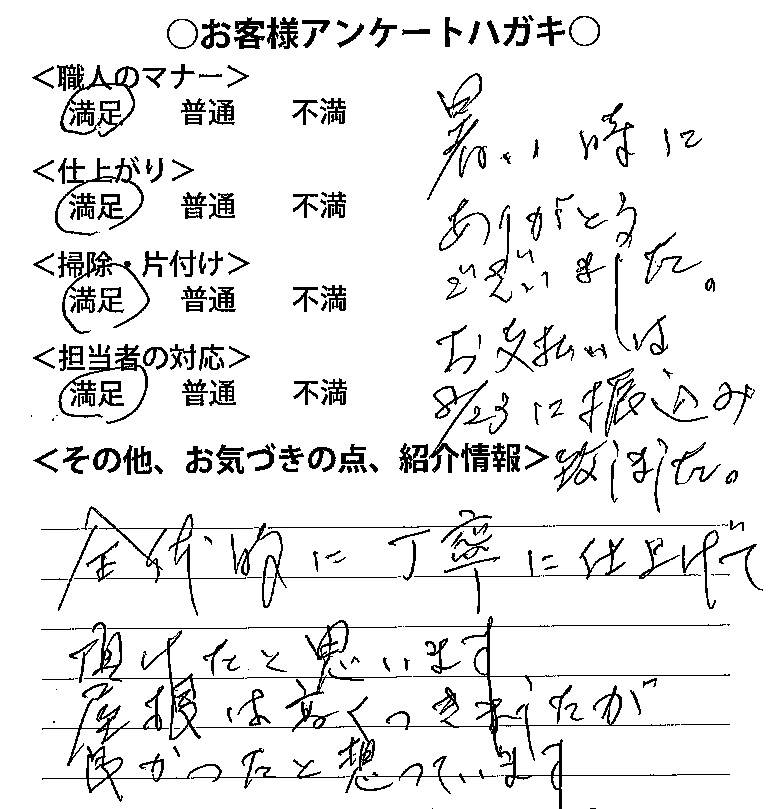 ○お客様アンケートハガキ○
＜職人のマナー＞
満足 普通 不満
＜仕上がり＞
満足 普通 不満
＜掃除・片付け＞
満足 普通 不満
＜担当者の対応＞
満足 普通 不満
暑い時に
ありがとう
ございました。
お支払いは
8/23に振込み
致しました。
＜その他、お気づきの点、紹介情報＞
全体的に丁寧に仕上げて
頂けたと思います
屋根は高くつきましたが
良かったと想っています